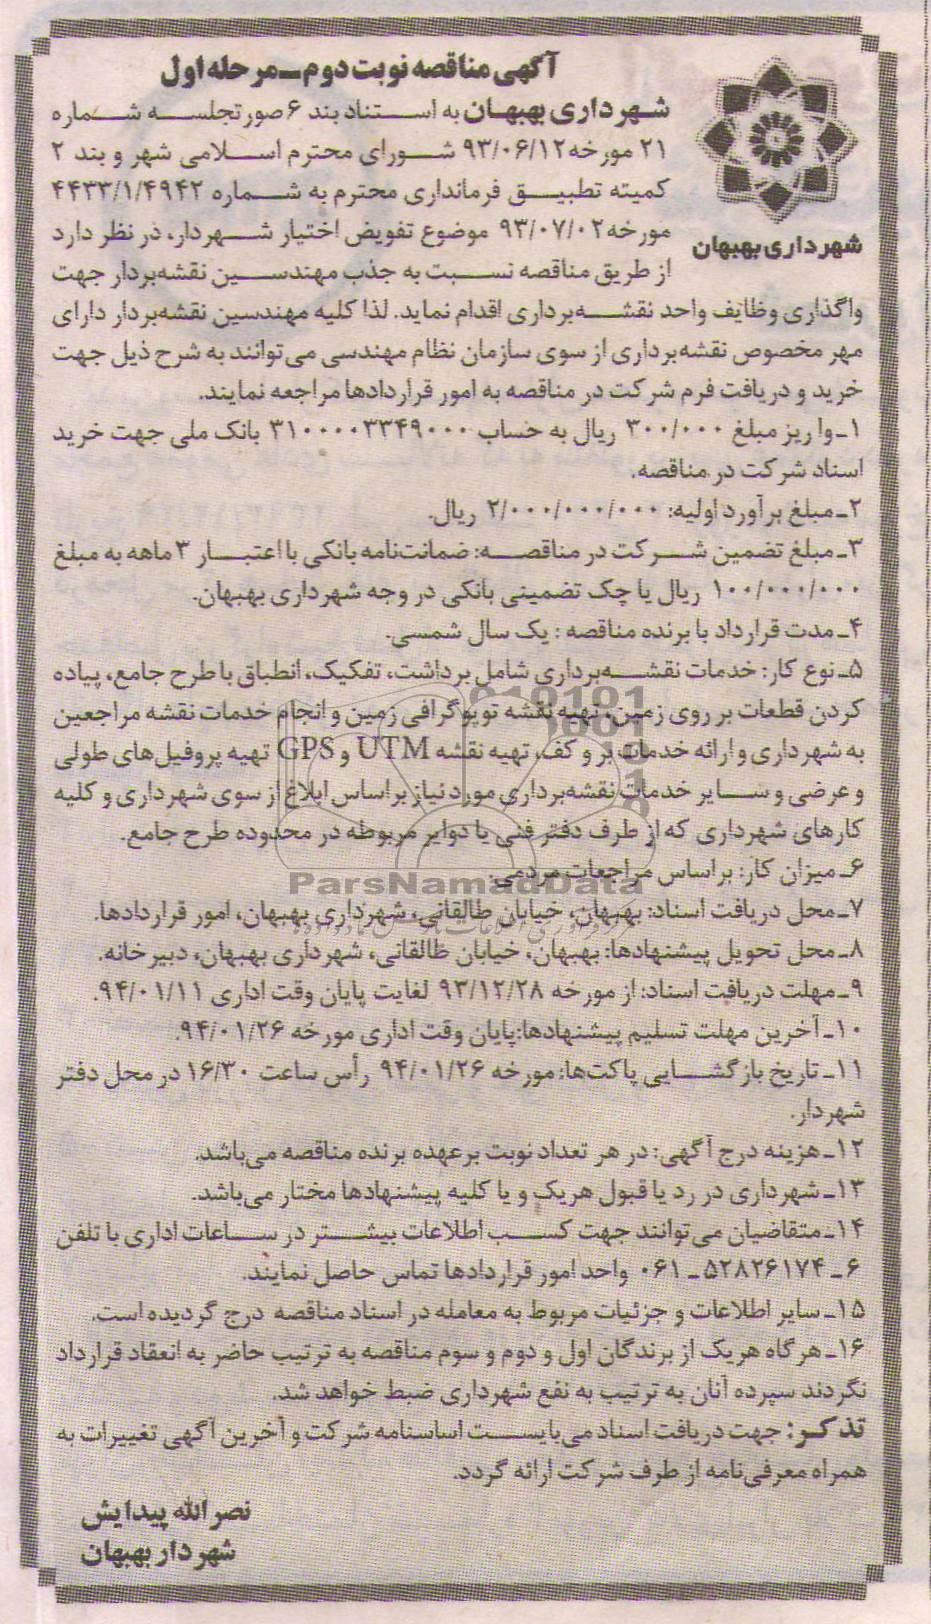 آگهی مناقصه نوبت دوم ـ مرحله اول
شهرداری بهبهان
شهرداری بهبهان به استناد بند ۶ صورتجلسه شماره
۲۱ مورخه ۹۳/۰۶/۱۲ شورای محترم اسلامی شهر و بند ۲
کمیته تطبیق فرمانداری محترم به شماره ۴۴۳۳/۱/۴۹۴۲
مورخه ۹۳/۰۷/۰۲ موضوع تفویض اختیار شهردار، در نظر دارد
از طریق مناقصه نسبت به جذب مهندسین نقشه‌بردار جهت
واگذاری وظایف واحد نقشه‌برداری اقدام نماید. لذا کلیه مهندسین نقشه‌بردار دارای
مهر مخصوص نقشه‌برداری از سوی سازمان نظام مهندسی می‌توانند به شرح ذیل جهت
خرید و دریافت فرم شرکت در مناقصه به امور قراردادها مراجعه نمایند.
۱ـ واریز مبلغ ۳۰۰/۰۰۰ ریال به حساب ۳۱۰۰۰۰۳۳۴۹۰۰۰ بانک ملی جهت خرید
اسناد شرکت در مناقصه.
۲ـ مبلغ برآورد اولیه: ۲/۰۰۰/۰۰۰/۰۰۰ ریال.
۳ـ مبلغ تضمین شرکت در مناقصه: ضمانت‌نامه بانکی با اعتبار ۳ ماهه به مبلغ
۱۰۰/۰۰۰/۰۰۰ ریال یا چک تضمینی بانکی در وجه شهرداری بهبهان.
۴ـ مدت قرارداد با برنده مناقصه : یک سال شمسی.
۵ـ نوع کار: خدمات نقشه‌برداری شامل برداشت، تفکیک، انطباق با طرح جامع، پیاده
کردن قطعات بر روی زمین، تهیه نقشه توپوگرافی زمین و انجام خدمات نقشه مراجعین
به شهرداری و ارائه خدمات بر و کف، تهیه نقشه UTM و GPS تهیه پروفیل‌های طولی
و عرضی و سایر خدمات نقشه‌برداری مورد نیاز براساس ابلاغ از سوی شهرداری و کلیه
کارهای شهرداری که از طرف دفتر فنی یا دوایر مربوطه در محدوده طرح جامع.
۶ـ میزان کار: براساس مراجعات مردمی.
ParsNamadData
۷ـ محل دریافت اسناد: بهبهان، خیابان طالقانی، شهرداری بهبهان، امور قراردادها.
۸ـ محل تحویل پیشنهادها: بهبهان، خیابان طالقانی، شهرداری بهبهان، دبیرخانه.
۹ـ مهلت دریافت اسناد: از مورخه ۹۳/۱۲/۲۸ لغایت پایان وقت اداری ۹۴/۰۱/۱۱.
۱۰ـ آخرین مهلت تسلیم پیشنهادها: پایان وقت اداری مورخه ۹۴/۰۱/۲۶.
۱۱ـ تاریخ بازگشایی پاکت‌ها: مورخه ۹۴/۰۱/۲۶ رأس ساعت ۱۶/۳۰ در محل دفتر
شهردار.
۱۲ـ هزینه درج آگهی: در هر تعداد نوبت برعهده برنده مناقصه می‌باشد.
۱۳ـ شهرداری در رد یا قبول هریک و یا کلیه پیشنهادها مختار می‌باشد.
۱۴ـ متقاضیان می‌توانند جهت کسب اطلاعات بیشتر در ساعات اداری با تلفن
۶ ـ ۵۲۸۲۶۱۷۴ ـ ۰۶۱ واحد امور قراردادها تماس حاصل نمایند.
۱۵ـ سایر اطلاعات و جزئیات مربوط به معامله در اسناد مناقصه درج گردیده است.
۱۶ـ هرگاه هریک از برندگان اول و دوم و سوم مناقصه به ترتیب حاضر به انعقاد قرارداد
نگردند سپرده آنان به ترتیب به نفع شهرداری ضبط خواهد شد.
تذکر: جهت دریافت اسناد می‌بایست اساسنامه شرکت و آخرین آگهی تغییرات به
همراه معرفی‌نامه از طرف شرکت ارائه گردد.
نصرالله پیدایش
شهردار بهبهان